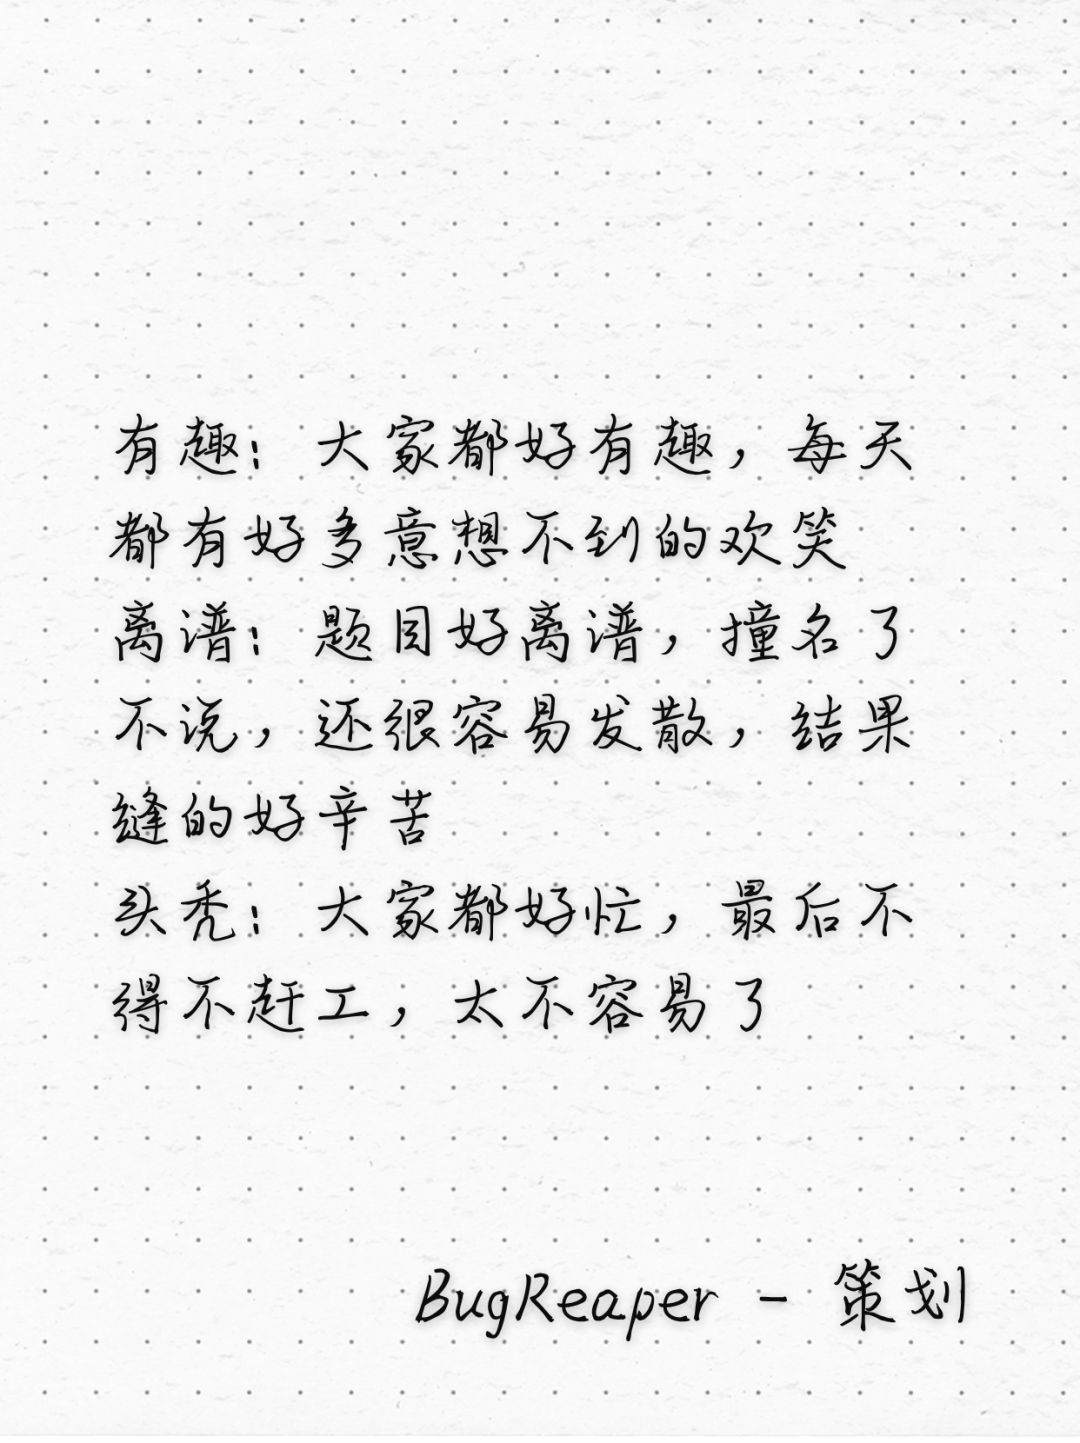 有趣：大家都好有趣，每天
都有好多意想不到的欢笑
离谱：题目好离谱，撞名了
不说，还很容易发散，结果
缝的好辛苦
头秃：大家都好忙，最后不
得不赶工，太不容易了
BugReaper - 策划